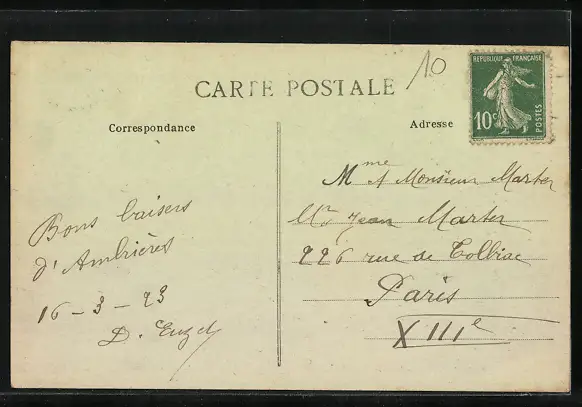 10
CARTE POSTALE
RÉPUBLIQUE FRANÇAISE
10c
POSTES
Correspondance
Adresse
Bons baisers
d'Ambrières
16-3-23
D.
Mme et Monsieur Marter
Jean Marter
226 rue de Tolbiac
Paris
XIIIe